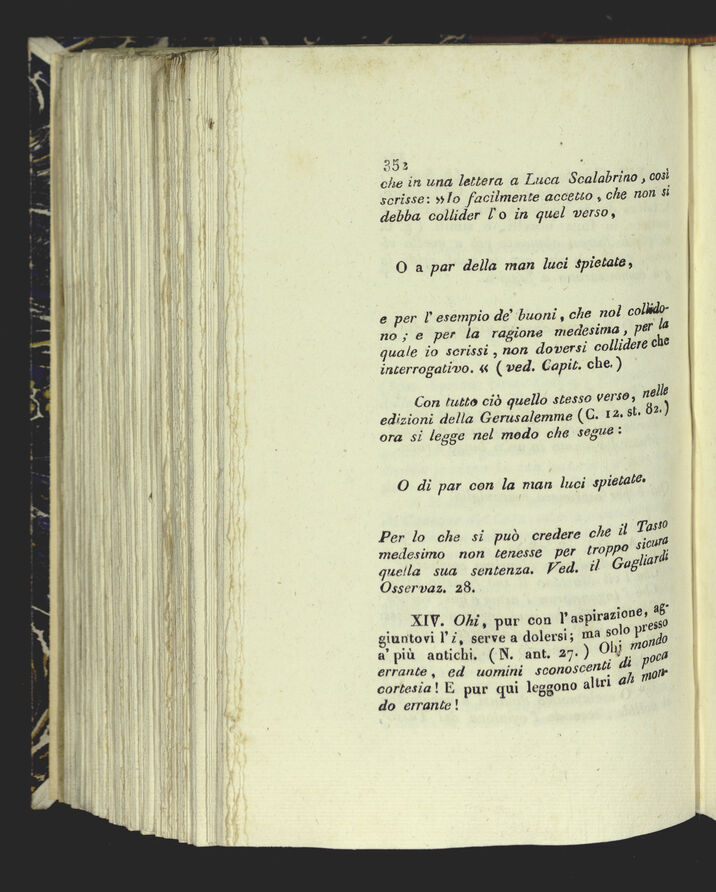 352
che in una lettera a Luca Scalabrino, così
scrisse: »Io facilmente accetto, che non si
debba collider l'o in quel verso,
O a par della man luci spietate,
e per l'esempio de' buoni, che nol collido-
no; e per la ragione medesima, per la
quale io scrissi, non doversi collidere che
interrogativo. « (ved. Capit. che.)
Con tutto ciò quello stesso verso, nelle
edizioni della Gerusalemme (C. 12. st. 82.)
ora si legge nel modo che segue:
O di par con la man luci spietate.
Per lo che si può credere che il Tasso
medesimo non tenesse per troppo sicura
quella sua sentenza. Ved. il Gagliardi
Osservaz. 28.
XIV. Ohi, pur con l'aspirazione, ag-
giuntovi l'i, serve a dolersi; ma solo presso
a' più antichi. (N. ant. 27.) Ohi mondo
errante, ed uomini sconoscenti di poca
cortesia! E pur qui leggono altri ah mon-
do errante!